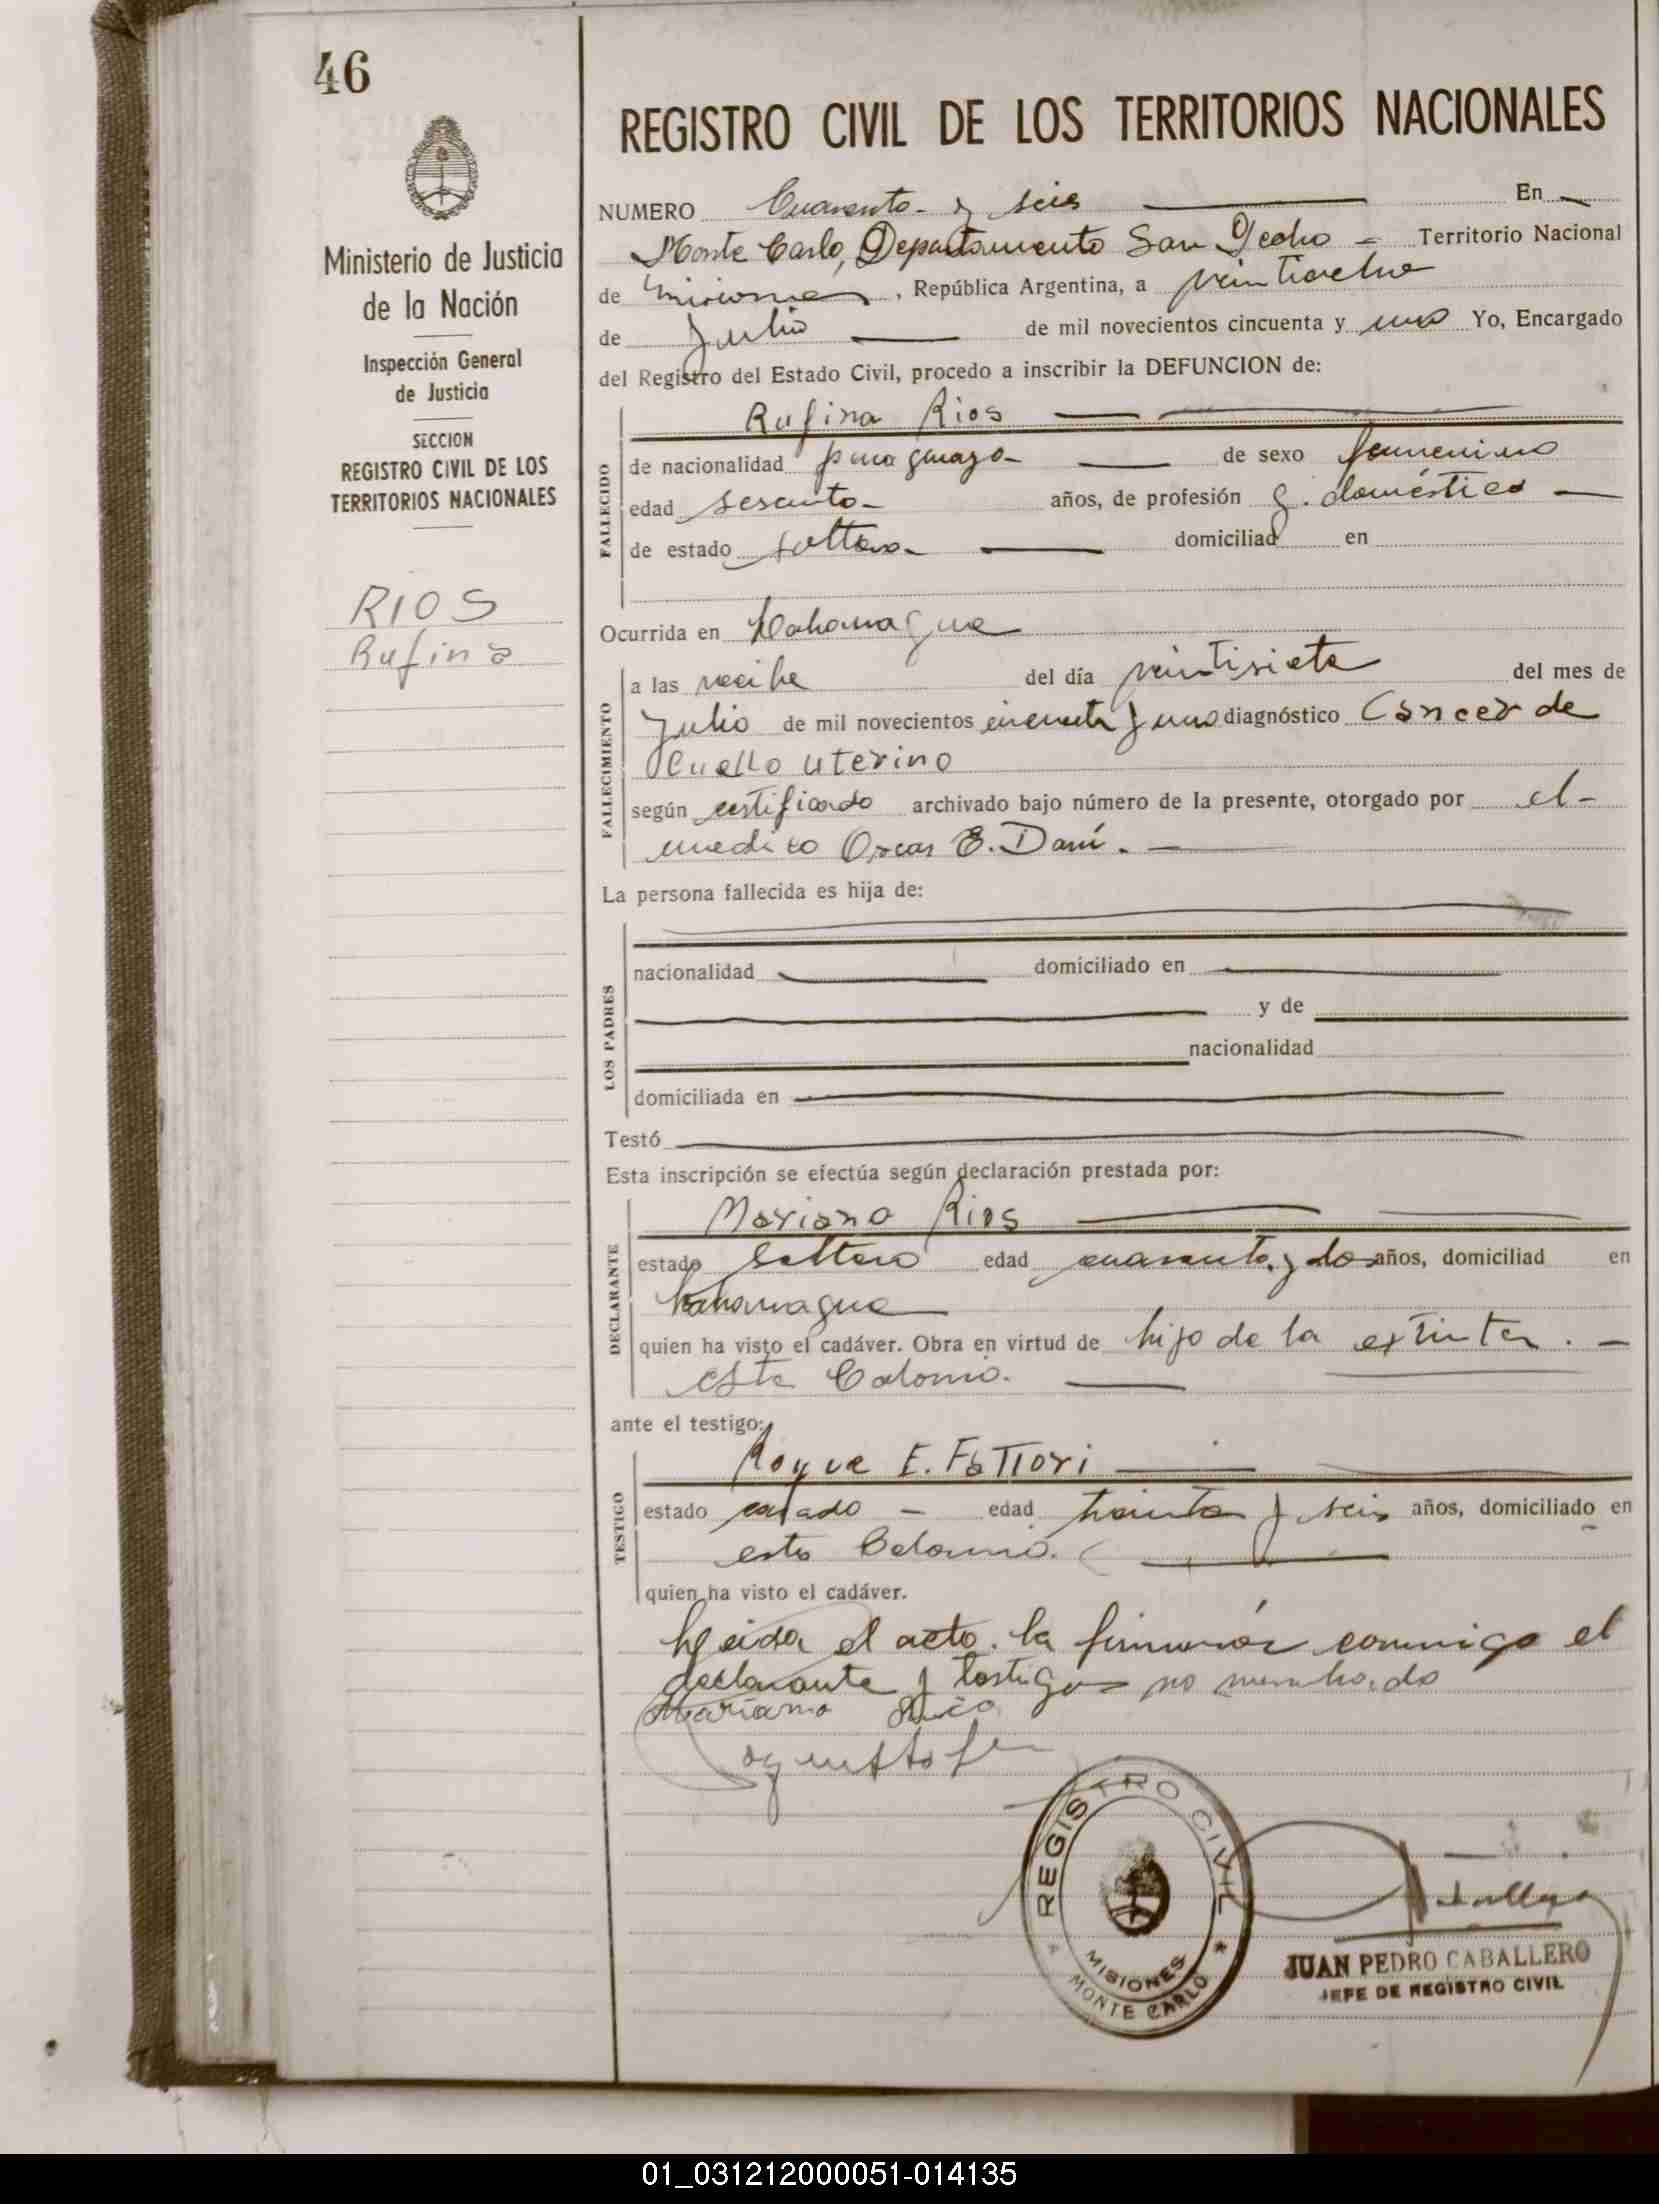 46
Ministerio de Justicia
de la Nación
Inspección General
de Justicia
SECCION
REGISTRO CIVIL DE LOS
TERRITORIOS NACIONALES
RIOS
Rufina
REGISTRO CIVIL DE LOS TERRITORIOS NACIONALES
NUMERO Cuarenta y seis En
Monte Carlo, Departamento San Pedro Territorio Nacional
de Misiones, República Argentina, a veintiocho
de Julio de mil novecientos cincuenta y uno Yo, Encargado
del Registro del Estado Civil, procedo a inscribir la DEFUNCION de:
Rufina Rios
FALLECIDO
de nacionalidad paraguaya de sexo femenino
edad sesenta años, de profesión q. doméstico
de estado soltera domiciliad en
Ocurrida en
FALLECIMIENTO
a las del día veintisiete del mes de
Julio de mil novecientos cincuenta y uno diagnóstico Cáncer de
Cuello uterino
según certificado archivado bajo número de la presente, otorgado por el
medico Oscar E.
La persona fallecida es hija de:
LOS PADRES
nacionalidad domiciliado en
y de
nacionalidad
domiciliada en
Testó
Esta inscripción se efectúa según declaración prestada por:
Mariano Rios
DECLARANTE
estado Soltero edad cuarenta y dos años, domiciliad en
quien ha visto el cadáver. Obra en virtud de hijo de la extinta.
esta Colonia.
ante el testigo:
Roque E. Fattori
TESTIGO
estado casado edad treinta y seis años, domiciliado en
esta Colonia.
quien ha visto el cadáver.
Leida el acta la firmaron conmigo el
declarante y testigo
Mariano Rios
REGISTRO CIVIL
MISIONES
MONTE CARLO
JUAN PEDRO CABALLERO
JEFE DE REGISTRO CIVIL
01_031212000051-014135